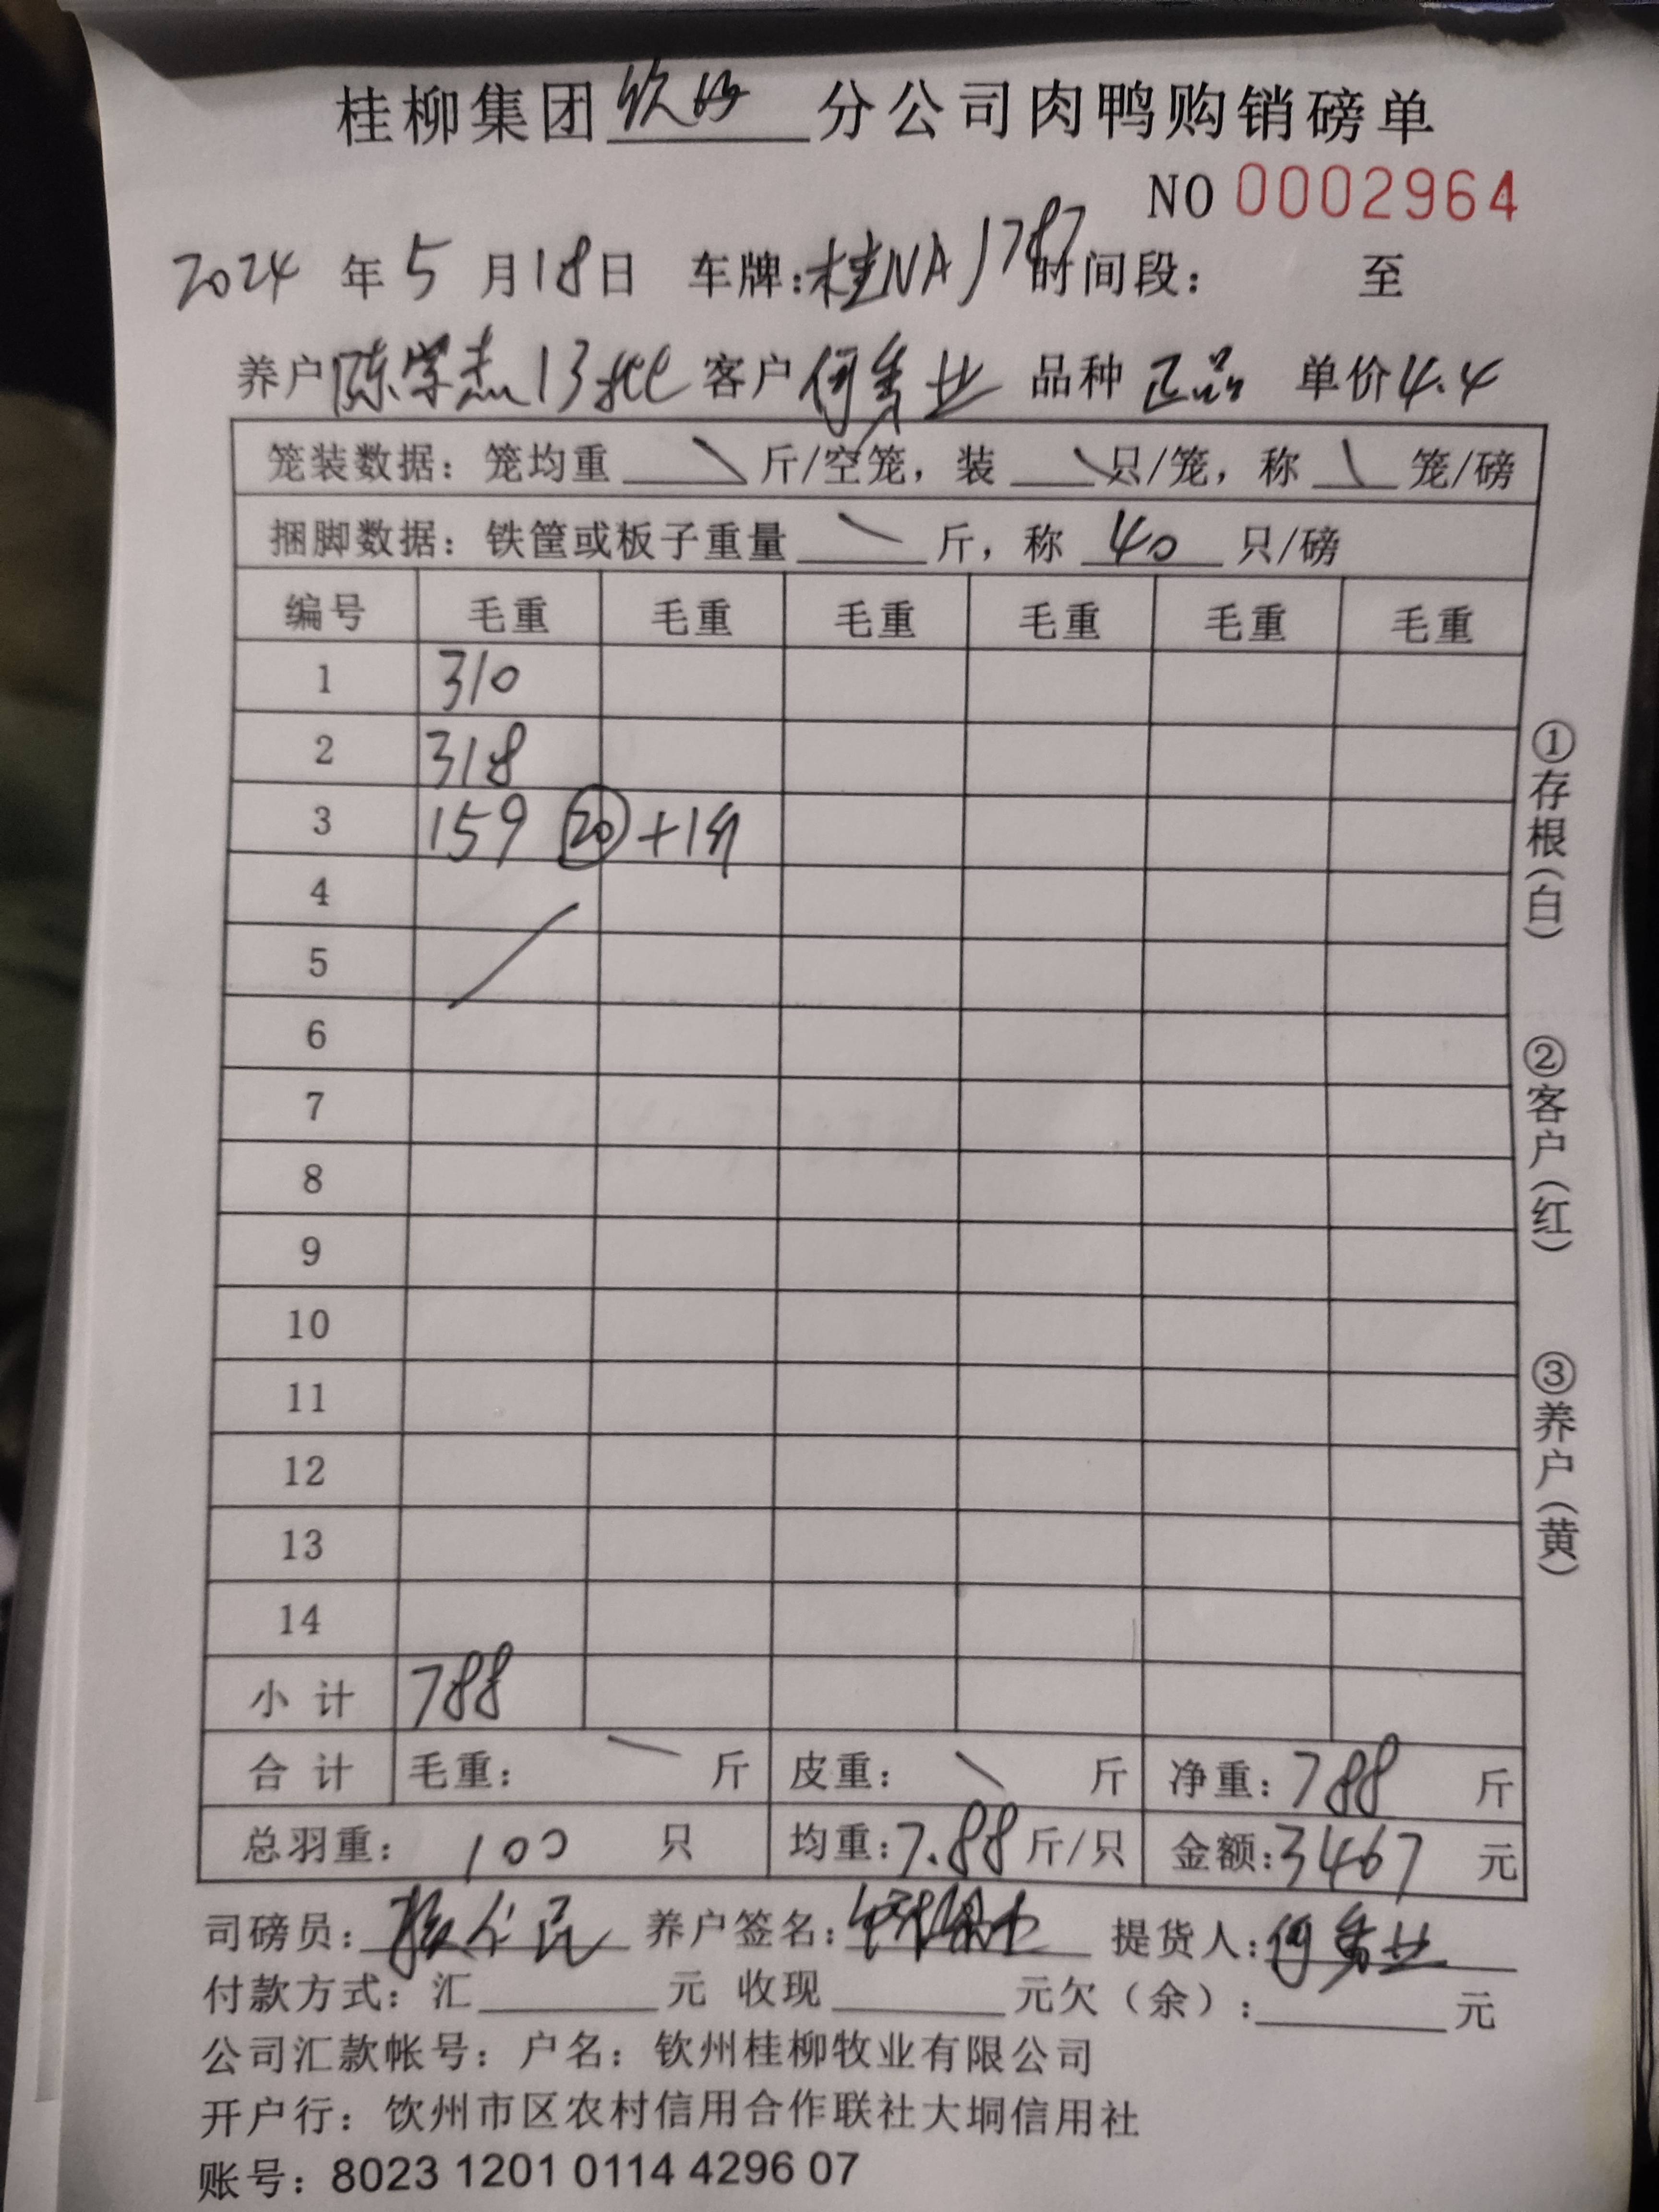 桂柳集团钦州分公司肉鸭购销磅单
NO 0002964
2024 年 5 月 18 日 车牌:桂NAJ787 时间段: 至
养户陈学杰13批 客户何秀业 品种 正品 单价4.4
笼装数据:笼均重 \ 斤/空笼,装 \ 只/笼,称 \ 笼/磅
捆脚数据:铁筐或板子重量 \ 斤,称 40 只/磅
编号 毛重 毛重 毛重 毛重 毛重 毛重
1 310
2 318
3 159 ⑳ +1斤
4
5
6
7
8
9
10
11
12
13
14
小计 788
合计 毛重: \ 斤 皮重: \ 斤 净重:788 斤
总羽重: 100 只 均重:7.88 斤/只 金额:3467 元
司磅员: 养户签名: 提货人:何秀业
付款方式:汇 元 收现 元欠(余): 元
公司汇款帐号:户名:钦州桂柳牧业有限公司
开户行:钦州市区农村信用合作联社大垌信用社
账号:8023 1201 0114 4296 07
①存根(白)
②客户(红)
③养户(黄)